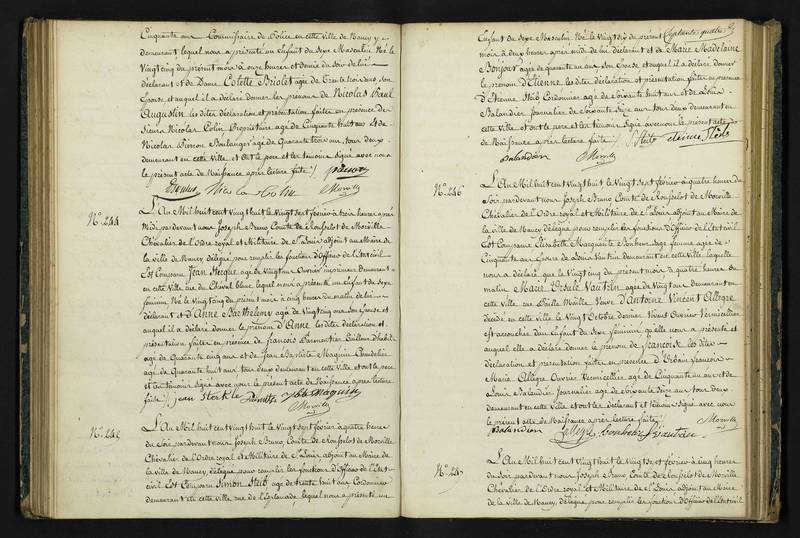 Cinquante ans Commissaire de Police en cette ville de Nancy y
demeurant lequel nous a présenté un Enfant du sexe Masculin Né le
vingt cinq du présent mois à onze heures et demie du soir de lui
déclarant et de Dame Colette Briolet agée de Trente trois ans, son
Epouse et auquel il a déclaré donner les prénoms de Nicolas Paul
Augustin les dites déclaration et présentation faites en présence de
Sieurs Nicolas Colin Propriétaire agé de Cinquante huit ans et de
Nicolas Pierson Boulanger agé de Quarante trois ans, tous deux
demeurant en cette ville et ont le pere et les témoins signé avec nous
le présent acte de Naissance après lecture faite
Nicolas Colin
Morville
No. 244
L'An Mil huit cent vingt huit le vingt sept février à trois heures après
midi pardevant nous Joseph Bruno, Comte de Rousselot de Morville
Chevalier de l'Ordre royal et Militaire de St Louis adjoint au Maire de
la ville de Nancy, délégué pour remplir les fonctions d'Officier de l'Etat civil
Est Comparu Jean Sterque agé de vingt
en cette ville rue du Cheval blanc lequel nous a présenté un Enfant du sexe
féminin Né le vingt cinq du présent mois à cinq heures du matin de lui
déclarant et d'Anne Barthelemy agée de vingt cinq ans son Epouse et
auquel il a déclaré donner le prénom d'Anne les dites déclaration et
présentation faites en présence de françois Parmentier Tailleur d'habits
agé de Quarante cinq ans et de Jean Baptiste Maguin Chandelier
agé de Quarante huit ans tous deux demeurant en cette ville et ont le pere
et les témoins signé avec nous le présent acte de Naissance après lecture
faite
Jean Sterkle
Maguin
Morville
No. 245
L'An Mil huit cent vingt huit le vingt sept février à quatre heures
du soir pardevant nous Joseph Bruno, Comte de Rousselot de Morville
Chevalier de l'Ordre royal et Militaire de St Louis adjoint au Maire de
la ville de Nancy, délégué pour remplir les fonctions d'Officier de l'Etat
civil Est Comparu Simon Steib agé de trente huit ans Cordonnier
demeurant en cette ville rue de l'Esplanade lequel nous a présenté un
Enfant du sexe Masculin Né le vingt six du présent
mois à deux heures après midi de lui déclarant et de Marie Madelaine
Bonjour agée de quarante un ans son Epouse et auquel il a déclaré donner
le prénom d'Etienne les dites déclaration et présentation faites en présence
d'Etienne Steib Cordonnier agé de soixante huit ans et de Louis
Balandier Journalier agé de soixante seize ans tous deux demeurant en
cette ville et ont le pere et les témoins signé avec nous le présent acte
de Naissance après lecture faite
S Steib etienne Steib
Balandier
Morville
No. 246
L'An Mil huit cent vingt huit le vingt sept février à quatre heures du
Soir pardevant nous Joseph Bruno Comte de Rousselot de Morville
Chevalier de l'Ordre royal et Militaire de St Louis adjoint au Maire de
la ville de Nancy délégué pour remplir les fonctions d'Officier de l'Etat civil
Est Comparue Elisabeth Marguerite Sage femme agée de
Cinquante ans Epouse de Louis Vautrin demeurant en cette ville laquelle
nous a déclaré que le vingt cinq du présent mois à quatre heures du
matin Marie Ursule Vautrin agée de vingt ans demeurant en
cette ville rue Veuve d'Antoine Vincent Allegre
décédé en cette ville le vingt Octobre dernier vivant Ouvrier Vermicellier
est accouchée d'un Enfant du sexe féminin qu'elle nous a présenté et
auquel elle a déclaré donner le prénom de françoise les dites
déclaration et présentation faites en présence d'Urbain françois
Marie Allegre Ouvrier Vermicellier agé de Cinquante un ans et de
Louis Balandier Journalier agé de soixante seize ans tous deux
demeurant en cette ville et ont les déclarante et témoins signé avec nous
le présent acte de Naissance après lecture faite
Morville
Balandier
Allegre Vautrin
No. 247
L'An Mil huit cent vingt huit le vingt sept février à cinq heures
du soir pardevant nous Joseph Bruno Comte de Rousselot de Morville
Chevalier de l'Ordre royal et Militaire de St Louis adjoint au Maire
de la ville de Nancy, délégué pour remplir les fonctions d'Officier de l'Etat civil